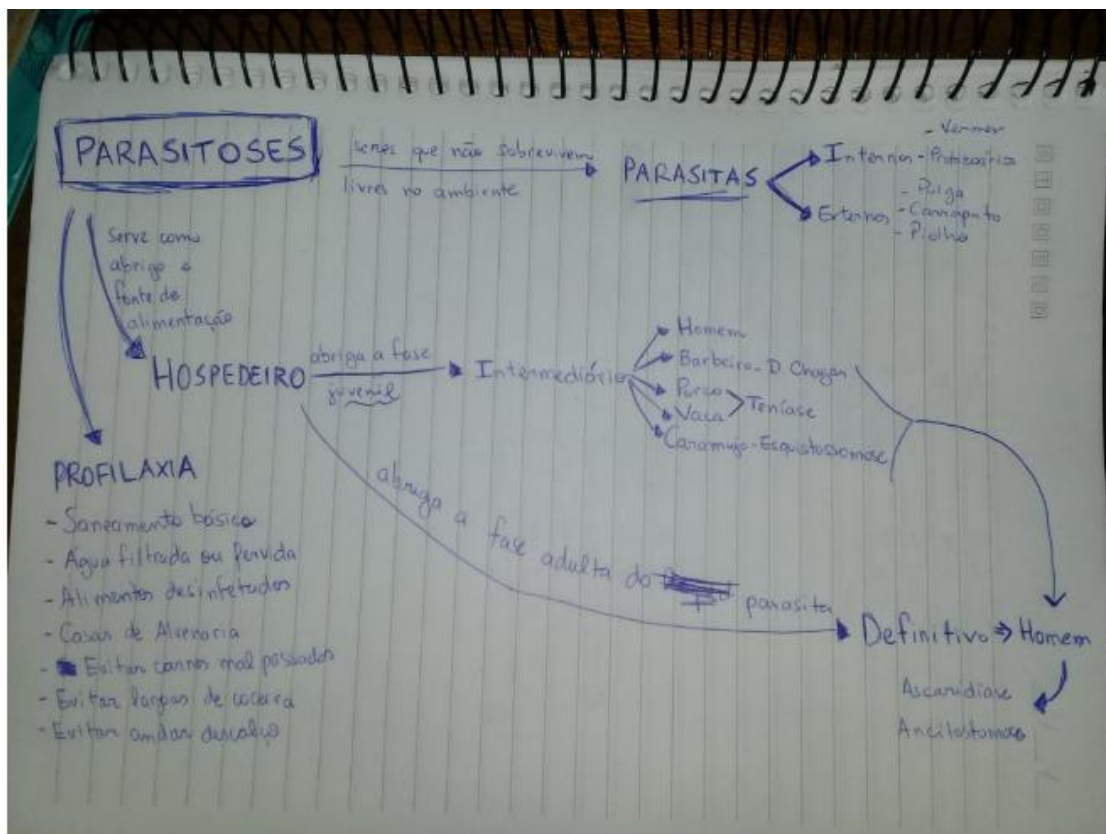 PARASITOSES
seres que não sobrevivem
livres no ambiente
PARASITAS
- Vermes
Internos - Protozoários
- Pulga
Externos - Carrapato
- Piolho
Serve como
abrigo e
fonte de
alimentação
HOSPEDEIRO
abriga a fase
juvenil
Intermediários
Homem
Barbeiro - D. Chagas
Porco
Vaca
Teníase
Caramujo - Esquistossomose
abriga a fase adulta do parasita
Definitivo ⇒ Homem
Ascaridíase
Ancilostomose
PROFILAXIA
- Saneamento básico
- Água filtrada ou fervida
- Alimentos desinfetados
- Casas de Alvenaria
- Evitar carnes mal passadas
- Evitar lagoas de coceira
- Evitar andar descalço